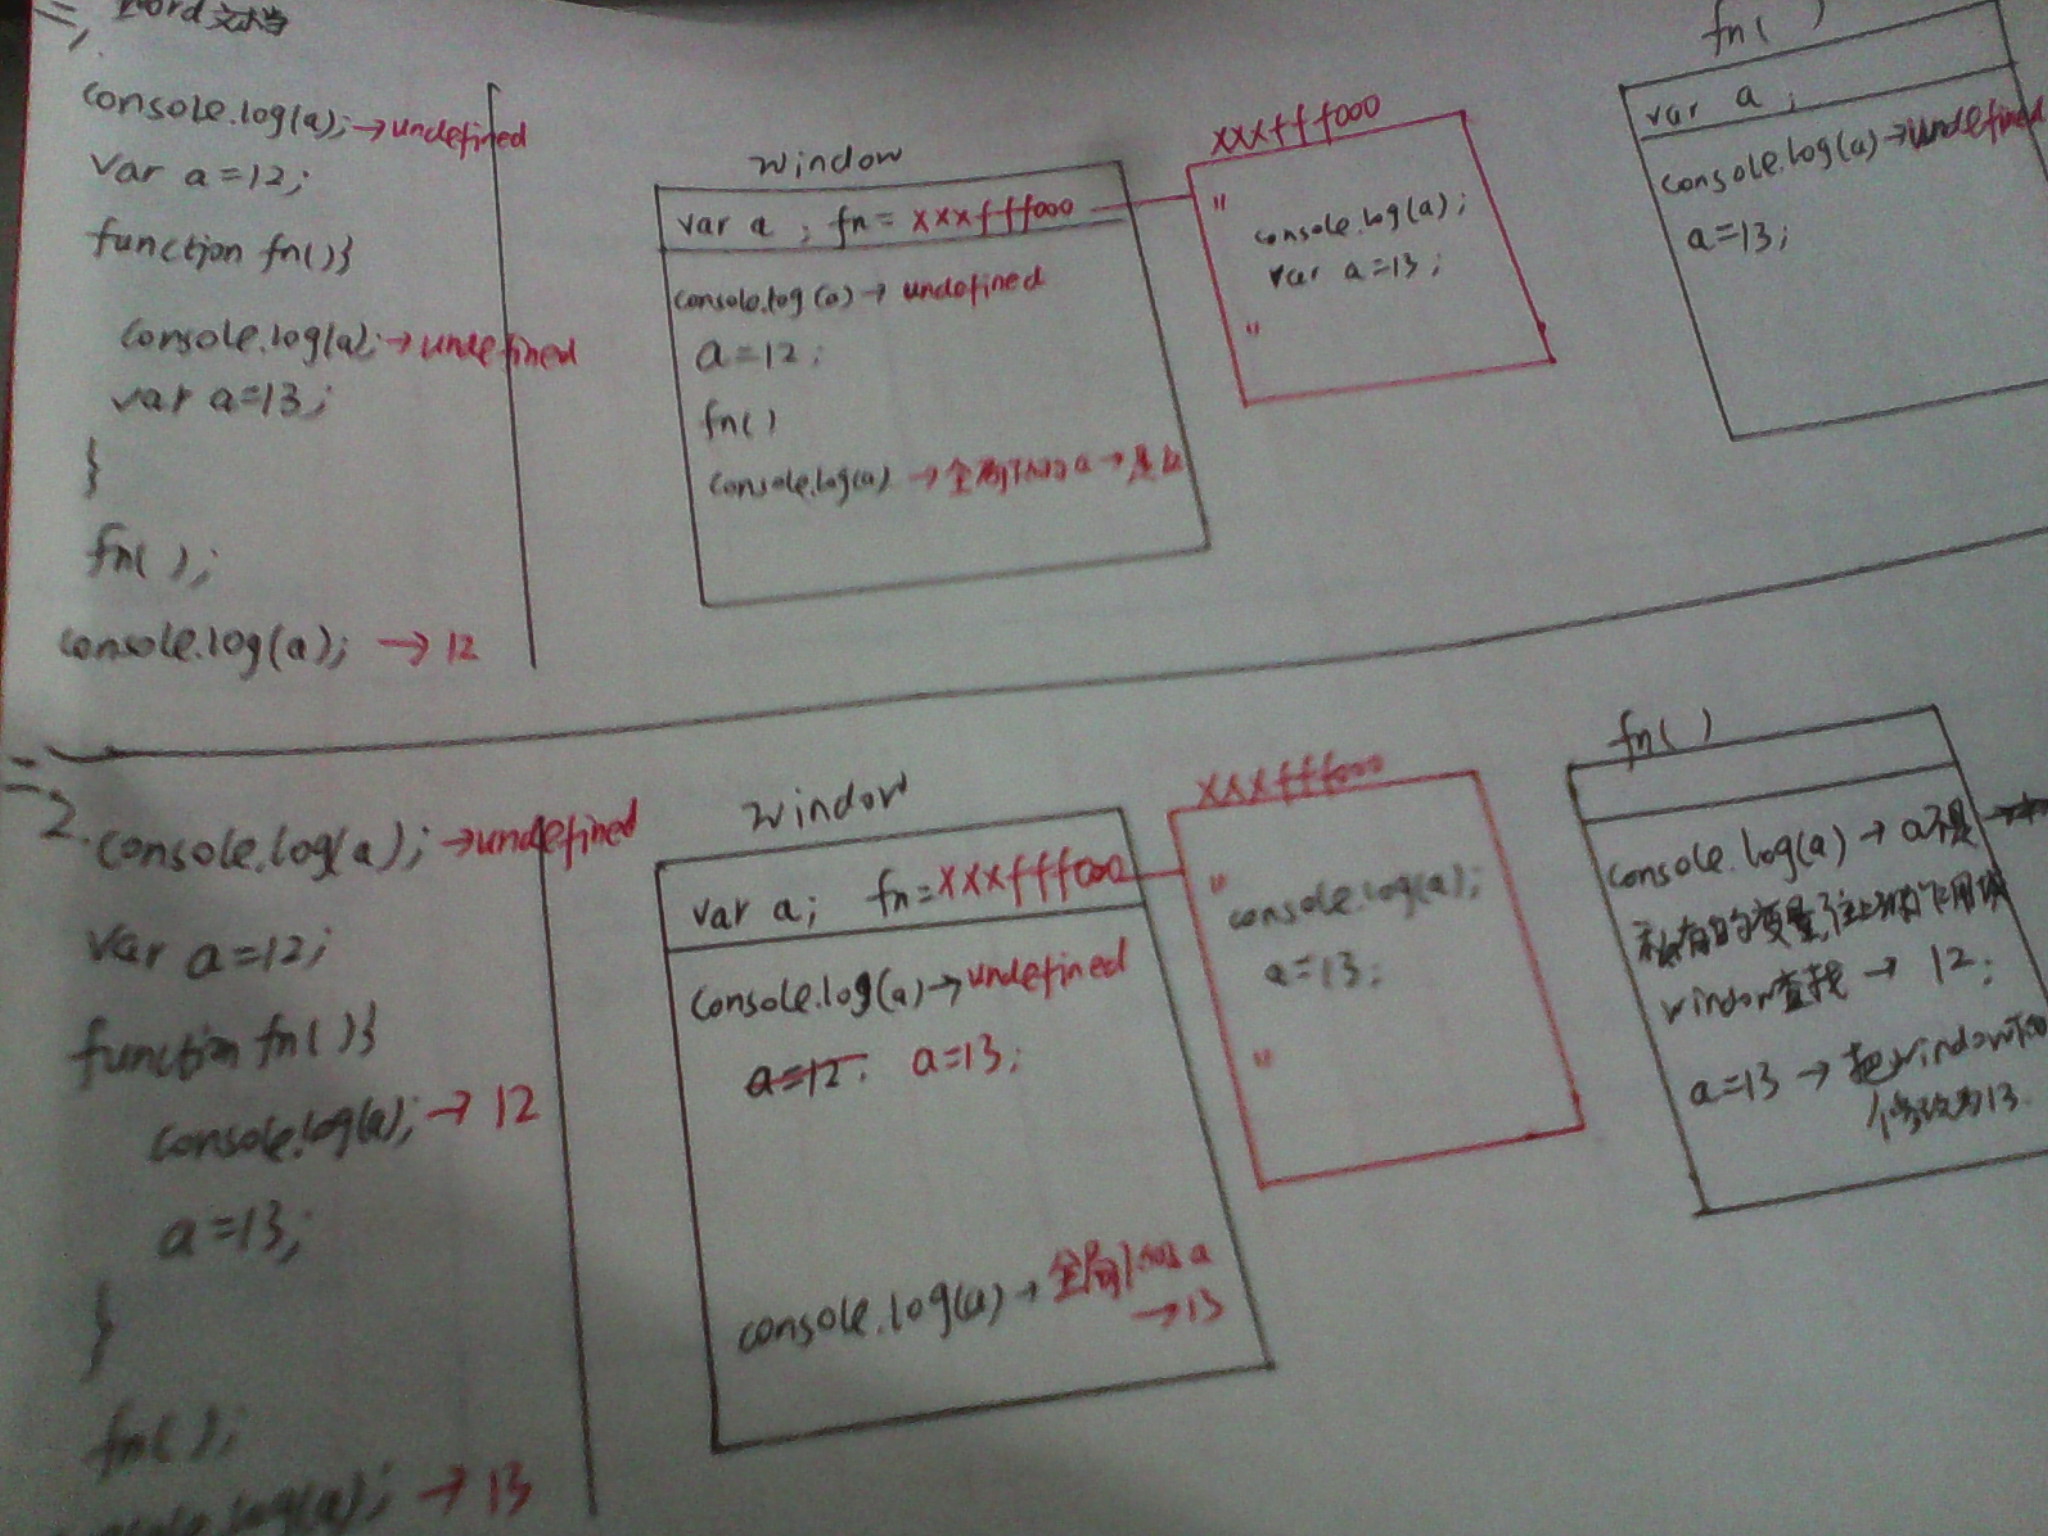 二、word文档
console.log(a);→undefined
var a=12;
function fn(){
console.log(a);→undefined
var a=13;
}
fn();
console.log(a); →12
window
var a ; fn= xxxfff000
console.log(a)→ undefined
a=12;
fn()
console.log(a) →全局下的a→是12
xxxfff000
"
console.log(a);
var a=13;
"
fn( )
var a ;
console.log(a)→undefined
a=13;
二、
2. console.log(a); →undefined
var a=12;
function fn(){
console.log(a);→12
a=13;
}
fn();
console.log(a); →13
window
var a; fn=xxxfff000
console.log(a)→undefined
a=12; a=13;
console.log(a)→全局下的a
→13
xxxfff000
"
console.log(a);
a=13;
"
fn()
console.log(a)→a不是
私有的变量,往上级作用域
window查找→ 12;
a=13→把window下的
修改为13.